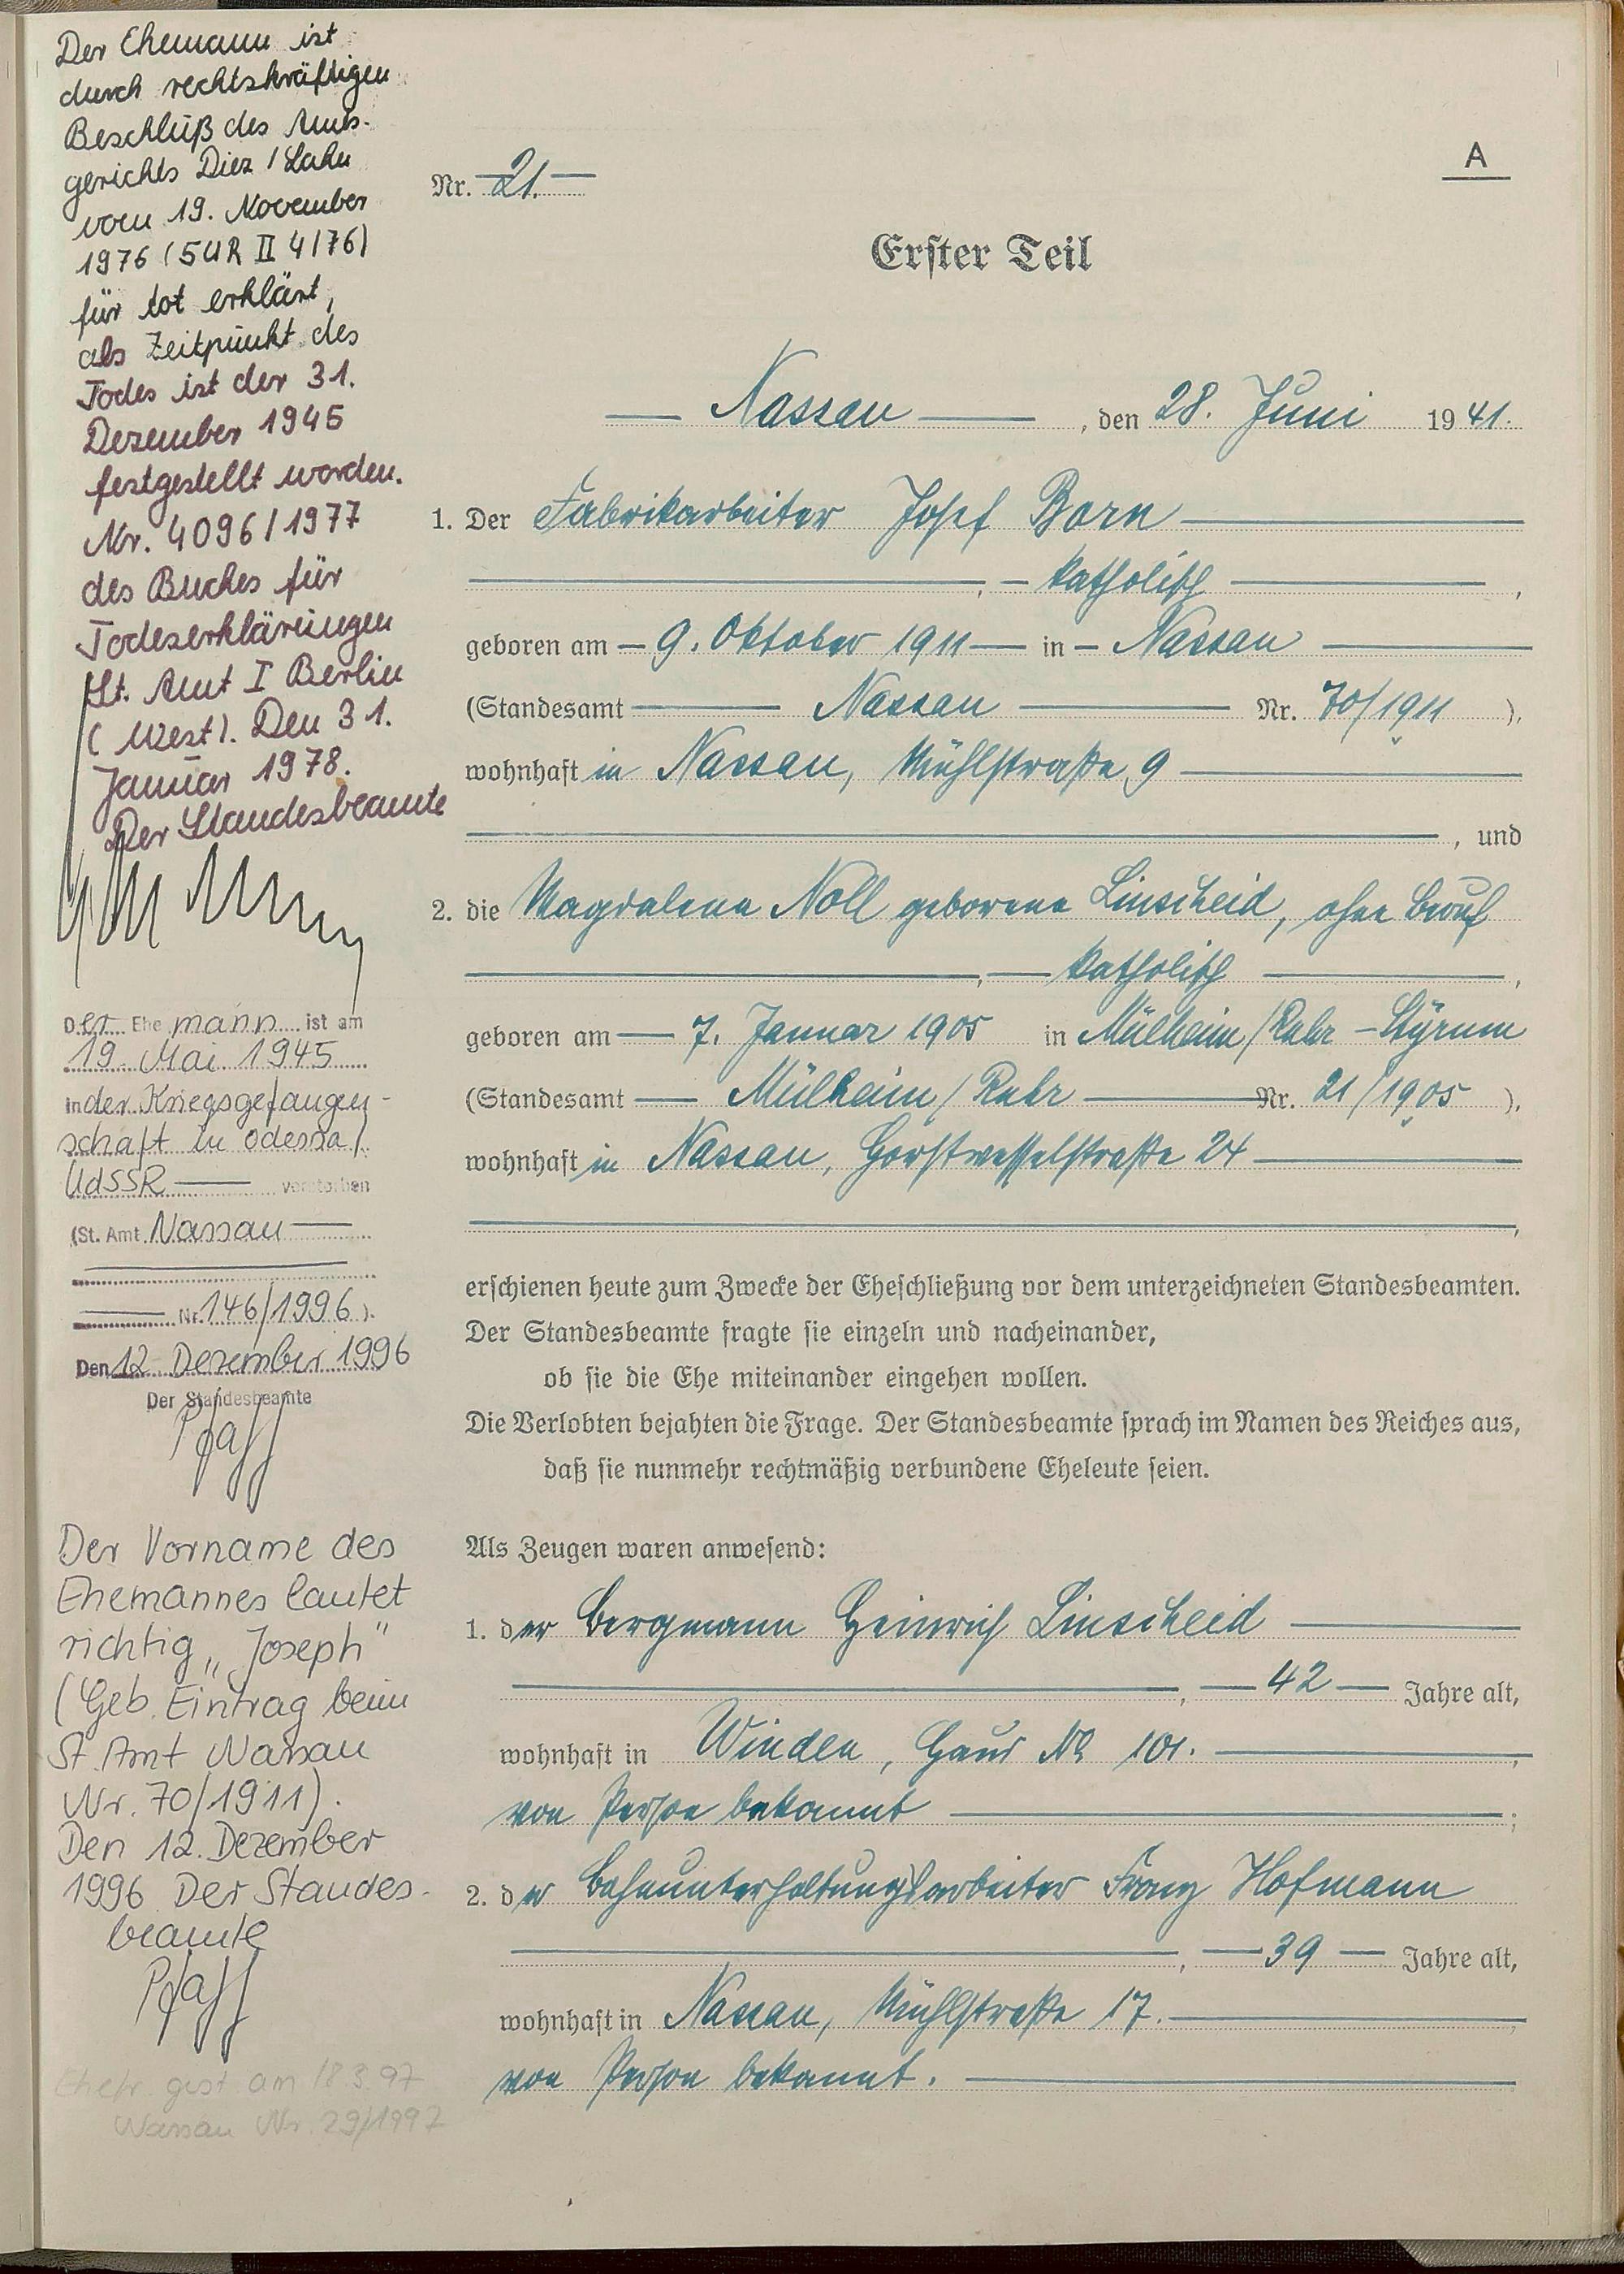 Der Ehemann ist
durch rechtskräftigen
Beschluß des Amts-
gerichts Diez / Lahn
vom 19. November
1976 (5 UR II 4/76)
für tot erklärt,
als Zeitpunkt des
Todes ist der 31.
Dezember 1945
festgestellt worden.
Nr. 4096/1977
des Buches für
Todeserklärungen
St. Amt I Berlin
(West). Den 31.
Januar 1978.
Der Standesbeamte
Der Ehemann ist am
19. Mai 1945
in der Kriegsgefangen-
schaft in Odessa /
UdSSR — verstorben
(St. Amt Nassau —
— Nr. 146/1996 ).
Den 12. Dezember 1996
Der Standesbeamte
Pfaff
Der Vorname des
Ehemannes lautet
richtig „Joseph"
(Geb. Eintrag beim
St. Amt Nassau
Nr. 70/1911).
Den 12. Dezember
1996 Der Standes-
beamte
Pfaff
Ehefr. gest. am 18.3.97
Nassau Nr. 29/1997
A
Nr. 21.
Erster Teil
Nassau, den 28. Juni 1941.
1. Der Fabrikarbeiter Josef Born
, katholisch ,
geboren am 9. Oktober 1911 in Nassau
(Standesamt Nassau Nr. 70/1911 ),
wohnhaft in Nassau, Mühlstraße 9
, und
2. die Magdalena Noll geborene Linscheid, ohne Beruf
, katholisch ,
geboren am 7. Januar 1905 in Mülheim/Ruhr - Styrum
(Standesamt Mülheim/Ruhr Nr. 21/1905 ),
wohnhaft in Nassau, Horstwesselstraße 24
,
erschienen heute zum Zwecke der Eheschließung vor dem unterzeichneten Standesbeamten.
Der Standesbeamte fragte sie einzeln und nacheinander,
ob sie die Ehe miteinander eingehen wollen.
Die Verlobten bejahten die Frage. Der Standesbeamte sprach im Namen des Reiches aus,
daß sie nunmehr rechtmäßig verbundene Eheleute seien.
Als Zeugen waren anwesend:
1. der Bergmann Heinrich Linscheid
, 42 Jahre alt,
wohnhaft in Winden, Haus No 101. ,
von Person bekannt ;
2. der Bahnunterhaltungsarbeiter Franz Hofmann
, 39 Jahre alt,
wohnhaft in Nassau, Mühlstraße 17. ,
von Person bekannt.